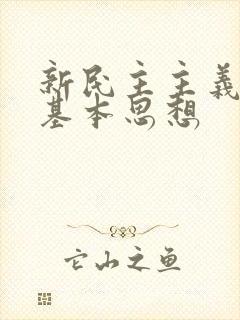 新民主主義
基本思想
它山之鱼